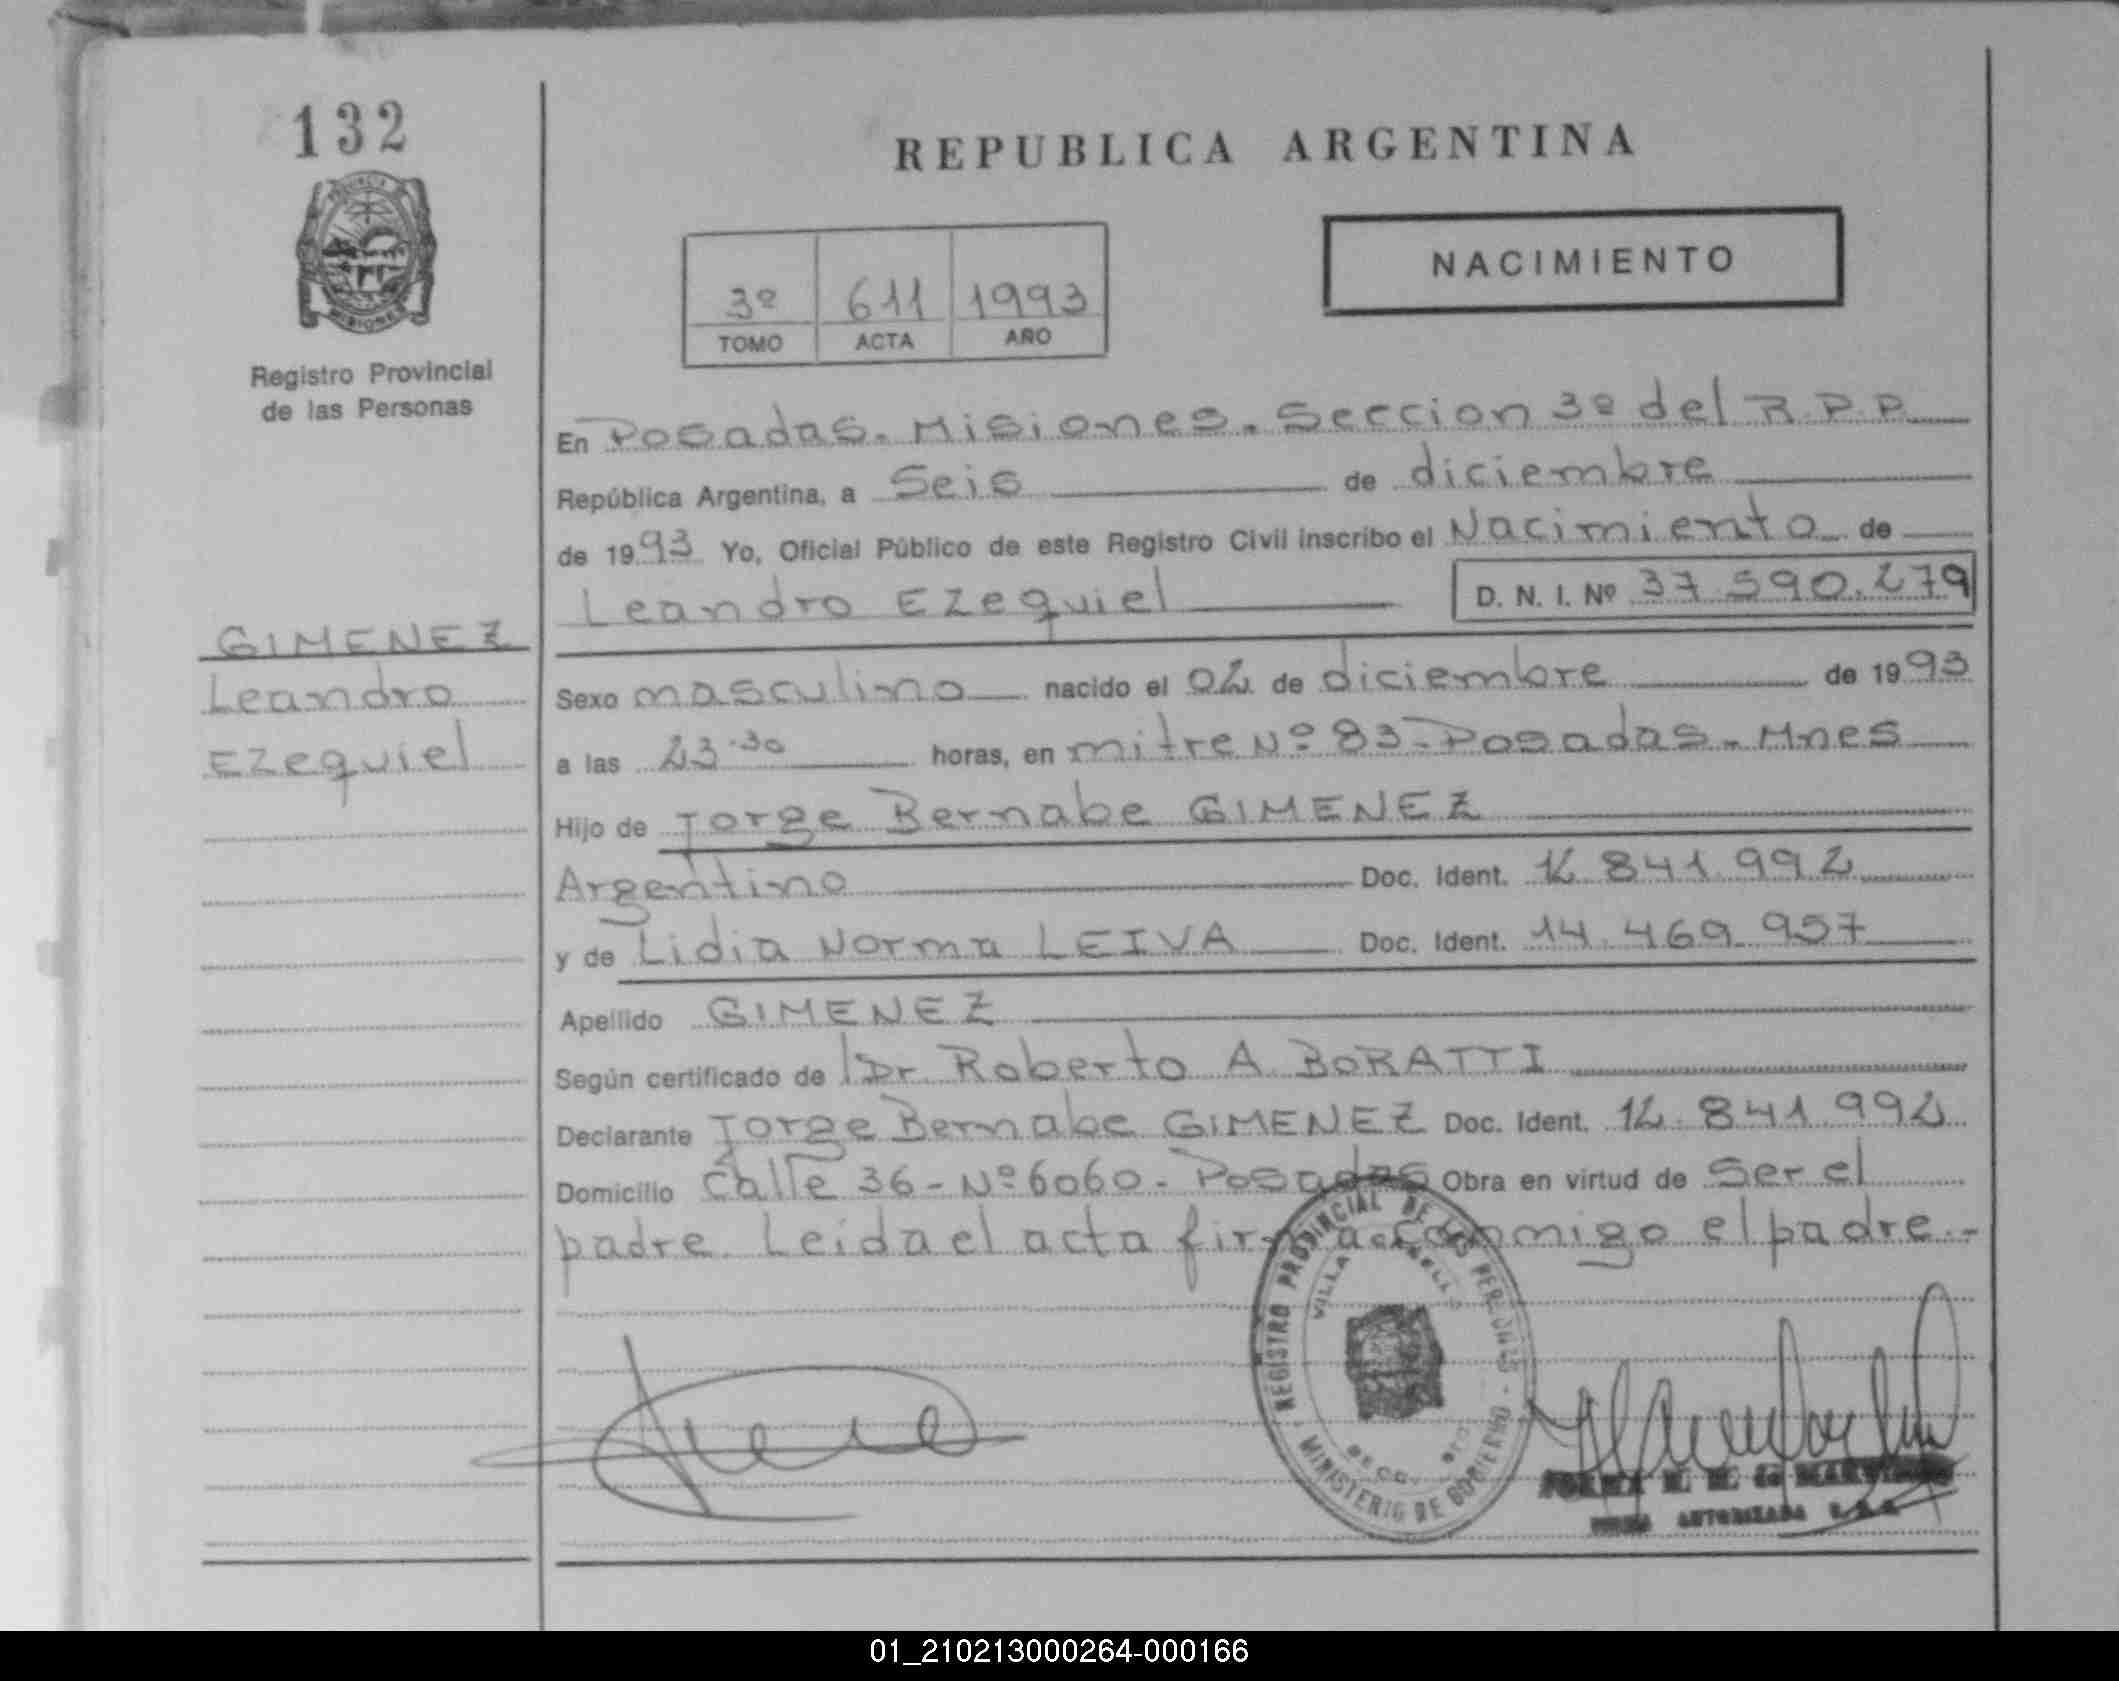 132
PROVINCIA DE
MISIONES
Registro Provincial
de las Personas
GIMENEZ
Leandro
Ezequiel
REPUBLICA ARGENTINA
NACIMIENTO
3º 611 1993
TOMO ACTA AÑO
En Posadas. Misiones. Seccion 3º del R.P.P.
República Argentina, a Seis de diciembre
de 1993 Yo, Oficial Público de este Registro Civil inscribo el Nacimiento de
Leandro Ezequiel D. N. I. Nº 37.590.279
Sexo masculino nacido el 02 de diciembre de 1993
a las 23.30 horas, en mitre Nº 83-Posadas-Mnes
Hijo de Jorge Bernabe GIMENEZ
Argentino Doc. Ident. 12.841.992
y de Lidia Norma LEIVA Doc. Ident. 14.469.957
Apellido GIMENEZ
Según certificado de Dr. Roberto A. BORATTI
Declarante Jorge Bernabe GIMENEZ Doc. Ident. 12.841.992
Domicilio Calle 36-Nº6060-Posadas Obra en virtud de Ser el
padre. Leida el acta firma conmigo el padre.-
REGISTRO PROVINCIAL DE LAS PERSONAS - MINISTERIO DE GOBIERNO
VILLA
de MARTINEZ
FIRMA AUTORIZADA
01_210213000264-000166